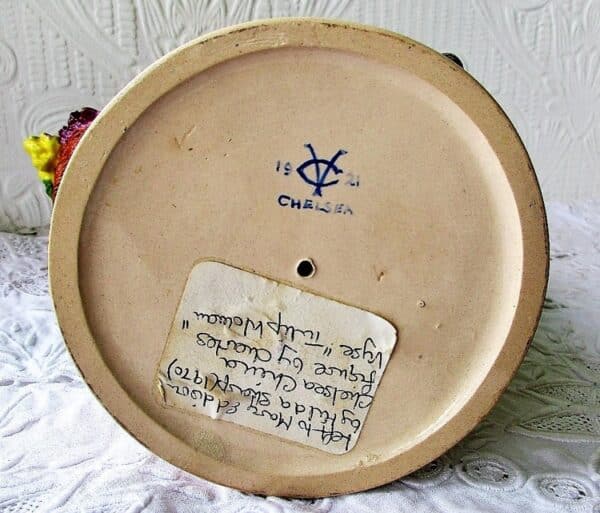 19 CV 21
CHELSEA
Left to Mary Eddison
by 1970)
Chelsea China
figure by Charles
Vyse "Tulip Woman"